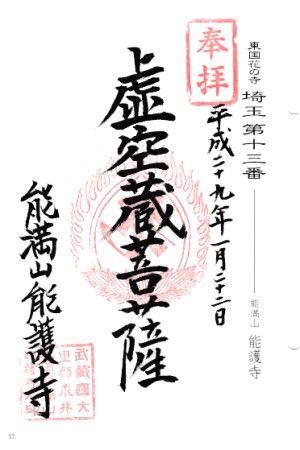 東国花の寺 埼玉 第十三番 能満山 能護寺
奉拝
平成二十九年一月二十二日
虚空蔵菩薩
能満山能護寺
武蔵國大
里郡永井
57